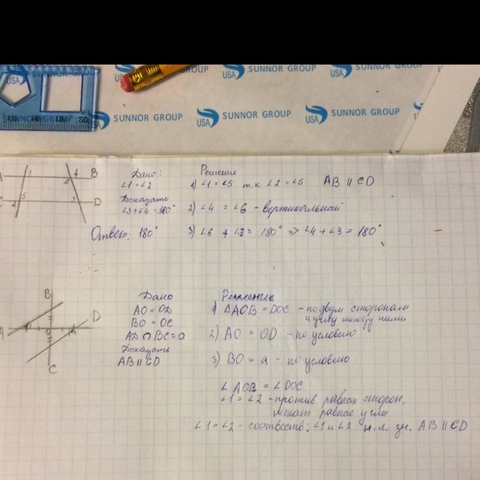 SUNNOR GROUP
USA SUNNOR GROUP
USA SUNNOR GROUP
SUNNOR GROUP USA SUNNOR GROUP USA
Дано: Решение
∠1=∠2 1) ∠1=∠5 т.к ∠2=∠5 AB || CD
Доказать
∠3+∠4=180° 2) ∠4 = ∠6 - вертикальный
Ответ: 180° 3) ∠6 + ∠3 = 180° => ∠4+∠3=180°
A B
C D
Дано Решение
AO=OD 1) ΔAOB=DOC - по двум сторонам
и углу между ними
BO=OC 2) AO = OD - по условию
AD∩BC=O
Доказать 3) BO = - по условию
AB||CD
∠AOB=∠DOC
∠1=∠2 - против равных сторон,
лежат равные углы
∠1=∠2 - соответств. ∠1 и ∠2 н.л. зн. AB || CD
B
D
A
C